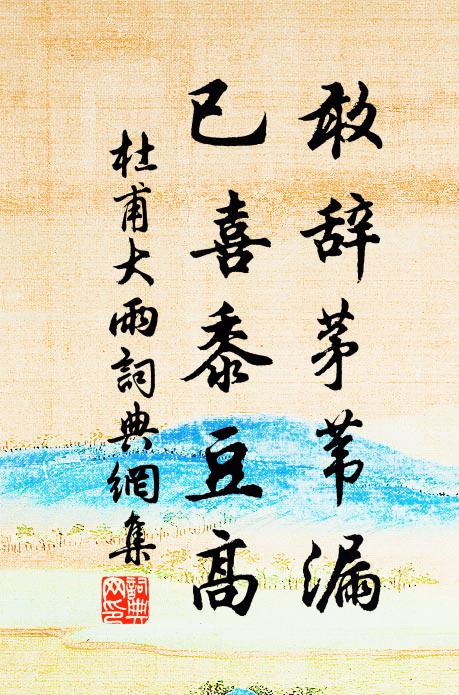 敢辞茅苇漏
已喜黍豆高
杜甫大雨詞典網集
詞典網印